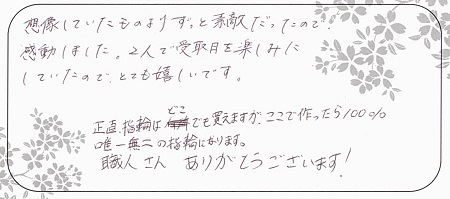 想像していたものよりずっと素敵だったので、
感動しました。2人で受取日を楽しみに
していたので、とても嬉しいです。
正直、指輪はどこでも買えますが、ここで作ったら100%
唯一無二の指輪になります。
職人さん ありがとうございます!